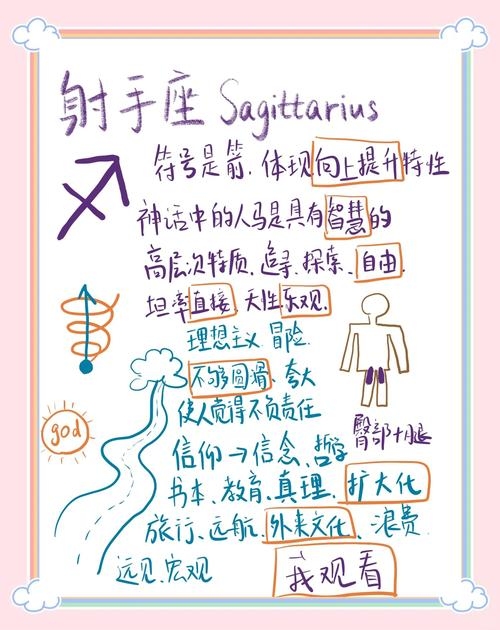 射手座 Sagittarius
符号是箭、体现向上提升特性
神话中的人马是具有智慧的
高层次特质、追寻、探索、自由、
坦率直接、天性乐观、
理想主义 冒险
不够圆滑、夸大
使人觉得不负责任
god
臀部大腿
信仰→信念、哲学
书本、教育、真理、扩大化
旅行、远航、外来文化、浪费
远见、宏观
我观看